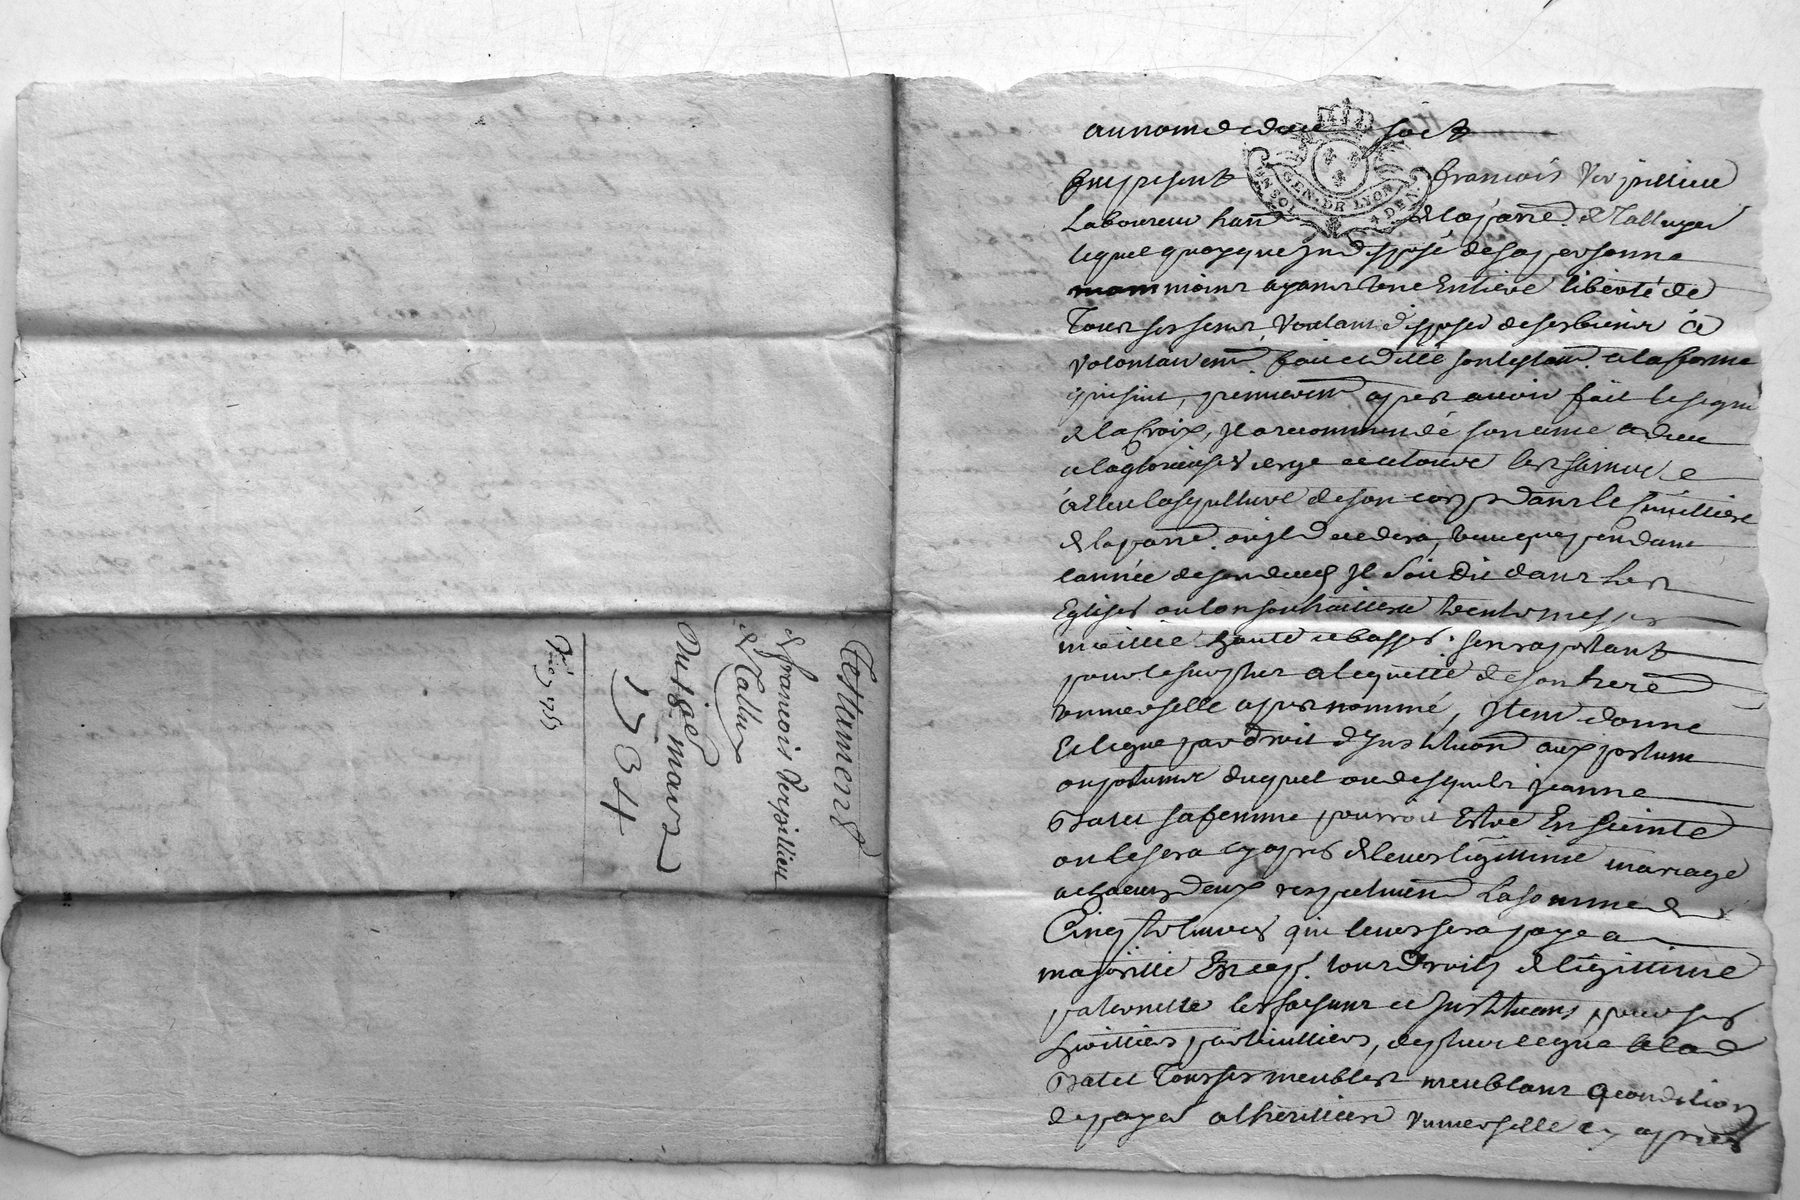 Testament
de francois Verpillieu
de Talluy
Du 18e mars
1734
au nom de dieu soit
GEN. DE LYON
fut present francois Verpillieu
Laboureur hant de la parre de Talluyer
lequel quoyque indisposé de sa personne
moins ayant une Entiere liberté de
Tour ses sens, voulant disposer de ses biens a
volontairemt fait et dicté son testamt a la forme
qui suit, premieremt apres avoir fait le signe
de la Croix, Il a recommandé son ame a dieu
a la glorieuse vierge et a tous les saints e
a Eleu la sepulture de son corps dans le simittiere
de la parre ou il decedera, veut que pendant
l'année de son deces Il soit dit dans les
Eglises ou l'on souhaittera trente messes
moitié haute et basses s'en raportant
pour le surplus a la piette de son here
universelle apres nommé, Item donne
Et legue par droit d'Institution aux postume
ou postumes duquel ou desquels jeanne
Patet sa femme pourroit Estre Enseinte
ou le sera cy apres de leur legittime mariage
a chacun d'eux respectivemt La somme de
Cinq livres qui leur sera payé a
majoritté pour tous droits de legittime
paternelle les faisant et Instituant pour ses
heritiers particulliers, de plus legue a lad
Patet Tous ses meubles meublant a condition
de payer a l'heritiere universelle cy apres